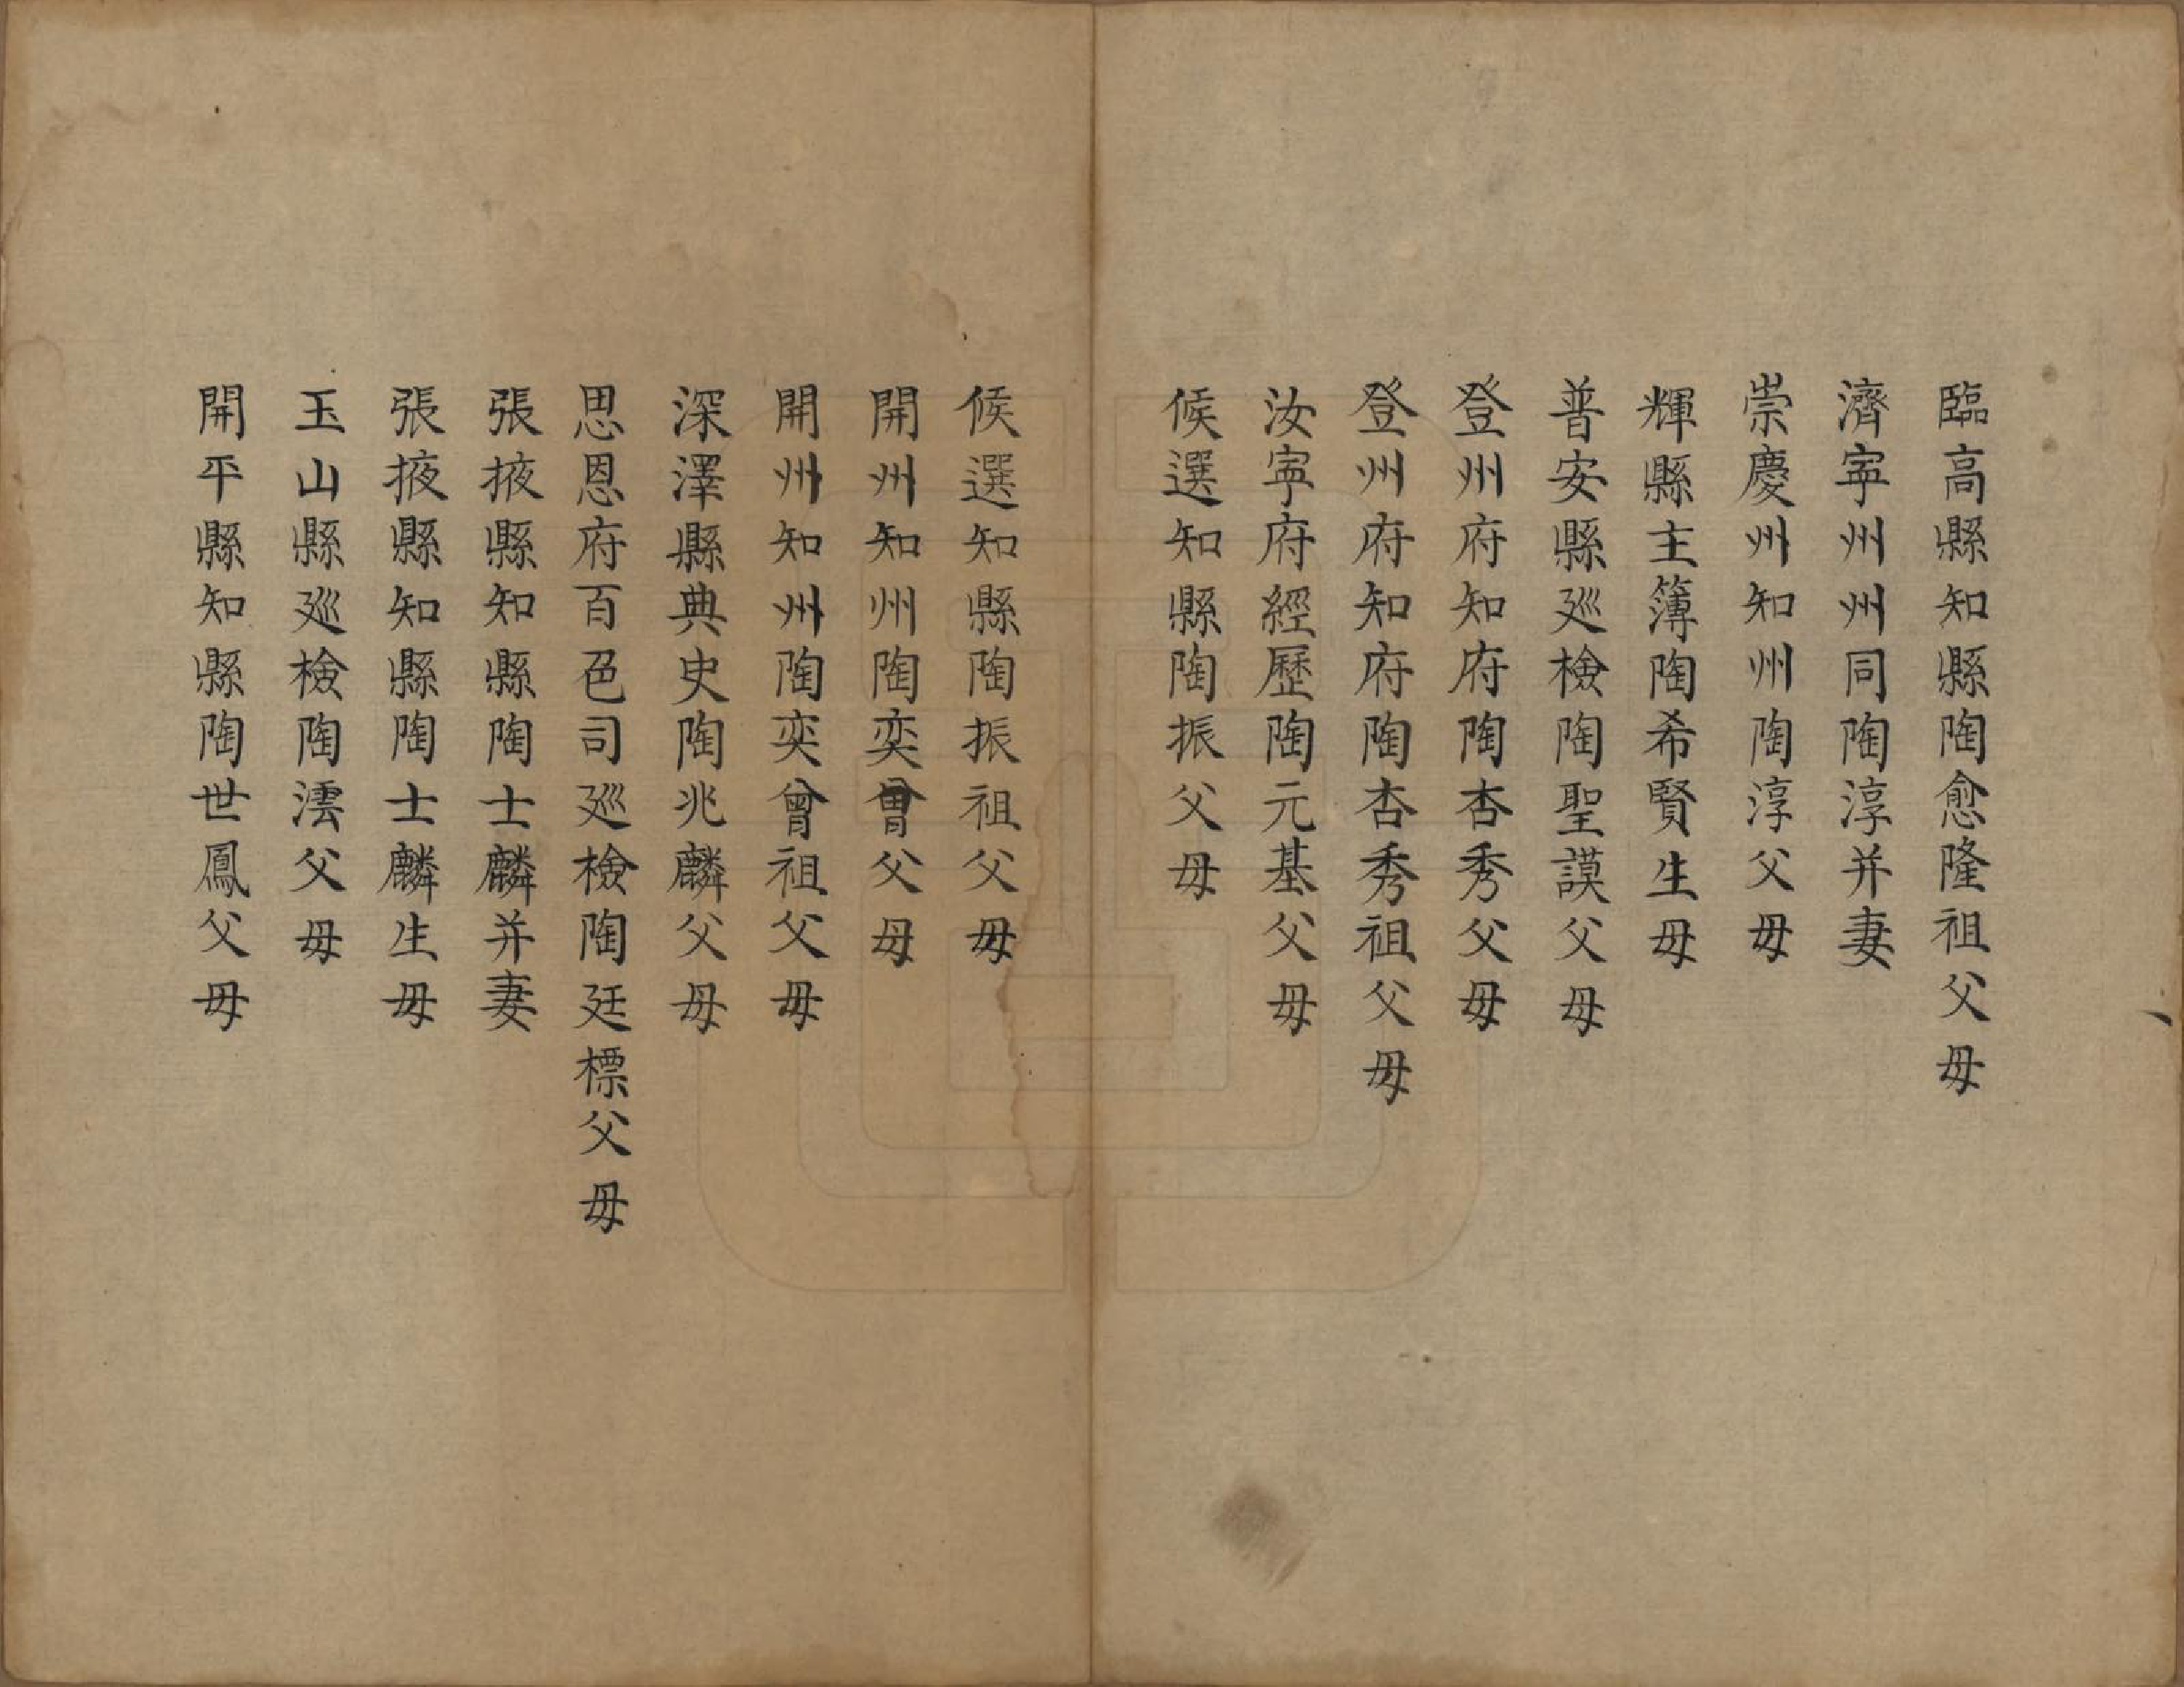 臨高縣知縣陶愈隆祖父母
濟寜州州同陶淳并妻
崇慶州知州陶淳父母
輝縣主簿陶希賢生母
普安縣廵檢陶聖謨父母
登州府知府陶杏秀父母
登州府知府陶杏秀祖父母
汝寜府經歷陶元基父母
候選知縣陶振父母
候選知縣陶振祖父母
開州知州陶奕曾父母
開州知州陶奕曾祖父母
深澤縣典史陶兆麟父母
思恩府百色司廵檢陶廷標父母
張掖縣知縣陶士麟并妻
張掖縣知縣陶士麟生母
玉山縣廵檢陶澐父母
開平縣知縣陶世鳳父母